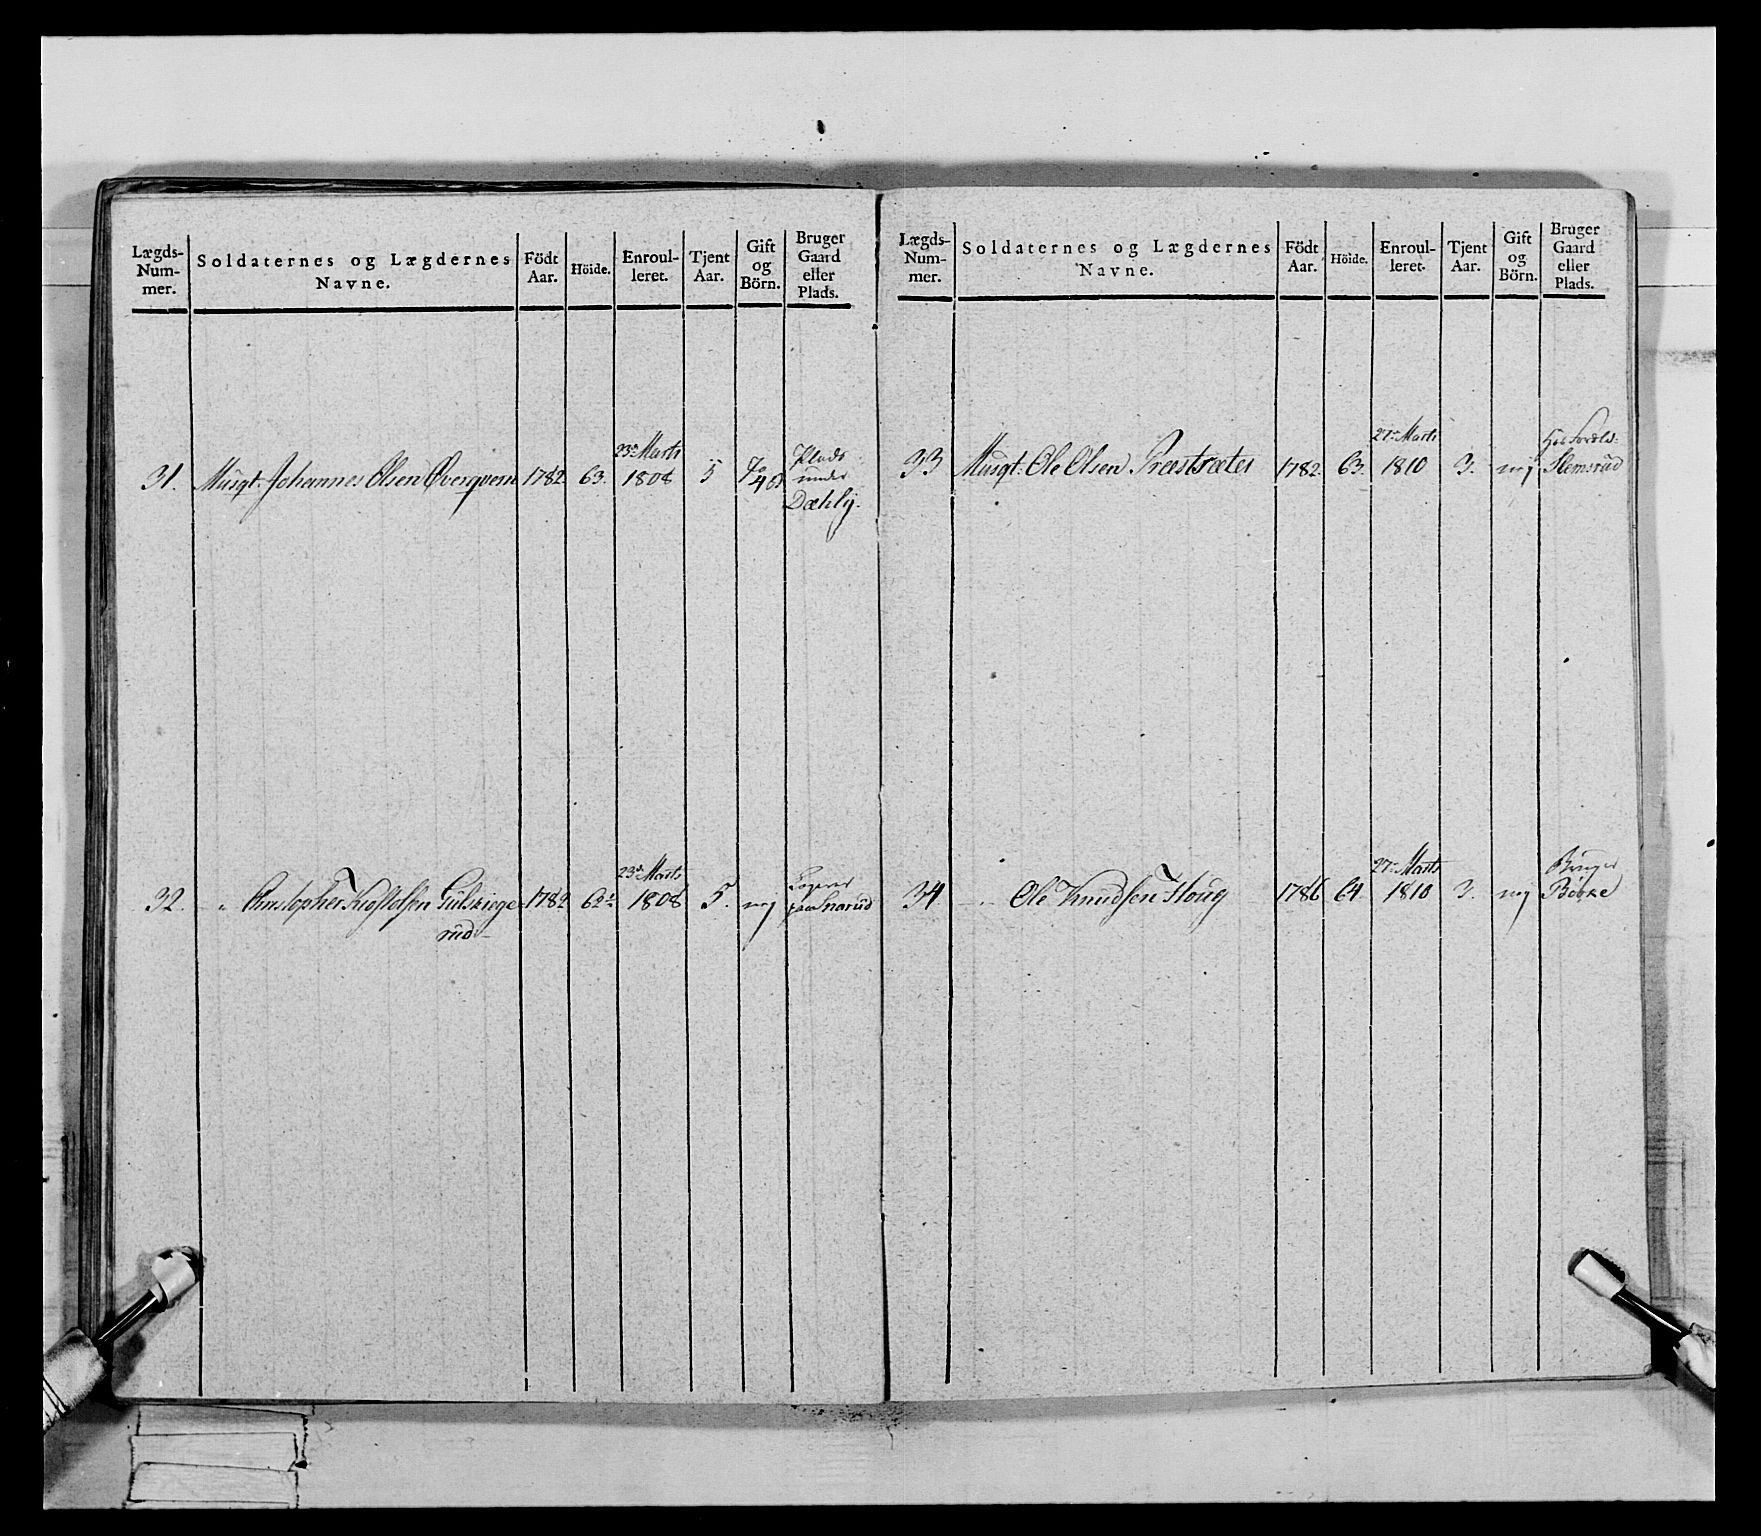 Lægds-Num-mer. Soldaternes og Lægdernes Navne. Födt Aar. Höide. Enroul-leret. Tjent Aar. Gift og Börn. Bruger Gaard eller Plads.
23de Marts
31. Musqt. Johannes Olsen Øverqvern 1782 63. 1808 5 Ja 4 B Plads under Dæhly.
23de Marts
32. " Christopher Gulskiøge rud 1782 62 1/2 1808 5. nej Logerer paa Snarud
Lægds-Num-mer. Soldaternes og Lægdernes Navne. Födt Aar. Höide. Enroul-leret. Tjent Aar. Gift og Börn. Bruger Gaard eller Plads.
27de Marts
33 Musqt: Ole Olsen Præstsæter 1782. 63. 1810 3. nej Hos Slemsrud
27de Marts
34 " Ole Knudsen Houg 1786 64. 1810 3. nej Bruger